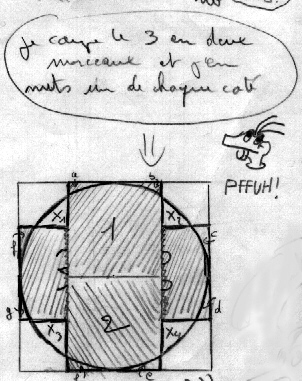 je coupe le 3 en deux
morceaux et j'en
mets un de chaque coté
PFFUH!
a b
X1 1 X2
f c
g d
X3 2 X4
e